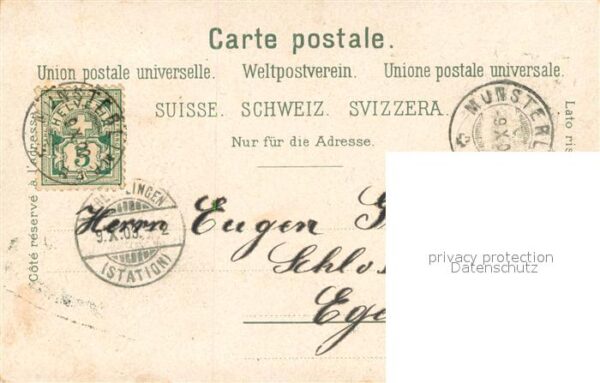 Carte postale.
Union postale universelle. Weltpostverein. Unione postale universale.
SUISSE. SCHWEIZ. SVIZZERA.
Nur für die Adresse.
Côté réservé à l'adresse
Lato ris
HELVETIA
5
MÜNSTERL
9.X.0
LINGEN
9.X.03.
(STATION)
Herrn Eugen
Schlo
Ege
privacy protection
Datenschutz